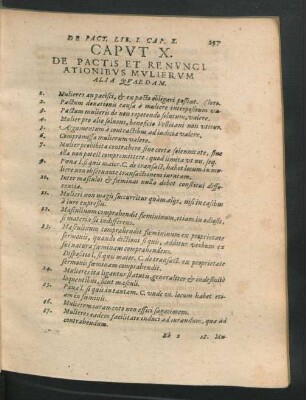 DE PACT. LIB. I. CAP. X. 257
CAPVT X.
DE PACTIS ET RENVNCI
ATIONIBVS MVLIERVM
ALIA QVAEDAM.
1. Mulieres an pacisci, & ex pacto obligari possint.
2. Pactum donationis causa à muliere interpositum
3. Pactum mulieris de non repetendo solutum, valere.
4. Mulier pro alio soluens, beneficio Velleiani non
5. Argumentum à contractibus ad iudicia valere.
6. Compromissa mulierum valere.
7. Mulier prohibita contrahere sine certa solennitate,
illa non potest compromittere: quod limita vt nu. seq.
9. Poena l. si quis maior. C. de transact. habet locum in mu-
liere non obseruante transactionem iuratam.
10. Inter masculos & foeminas nulla debet constitui diffe-
rentia.
11. Mulieri non magis succurritur quàm alijs, nisi in casibus
à iure expressis.
12. Masculinum comprehendit foemininum, etiam in odiosis,
si materia sit indifferens.
13. Masculinum comprehendit foemininum ex proprietate
sermonis, quando dictioni si quis, additur verbum ex
sui natura comprehendens.
Dispositio l. si quis maior. C. de transact. ex proprietate
sermonis foeminam comprehendit.
14. Mulieres ita ligantur statutis generaliter & indefinitè
loquentibus, sicut masculi.
15. Poena l. si quis in tantam. C. vnde vi. locum habet et-
iam in foemina.
16. Mulierem iuratam non effici sagaciorem.
17. Mulieres eadem facilitate induci ad iurandum, qua ad
contrahendum.
Kk 2 18. Mu-